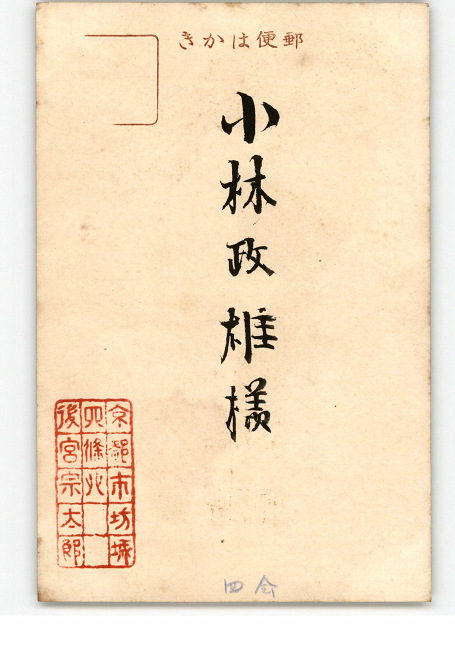 郵便はかき
小林政雄様
京都市坊城
四條北
後宮宗太郎
四会